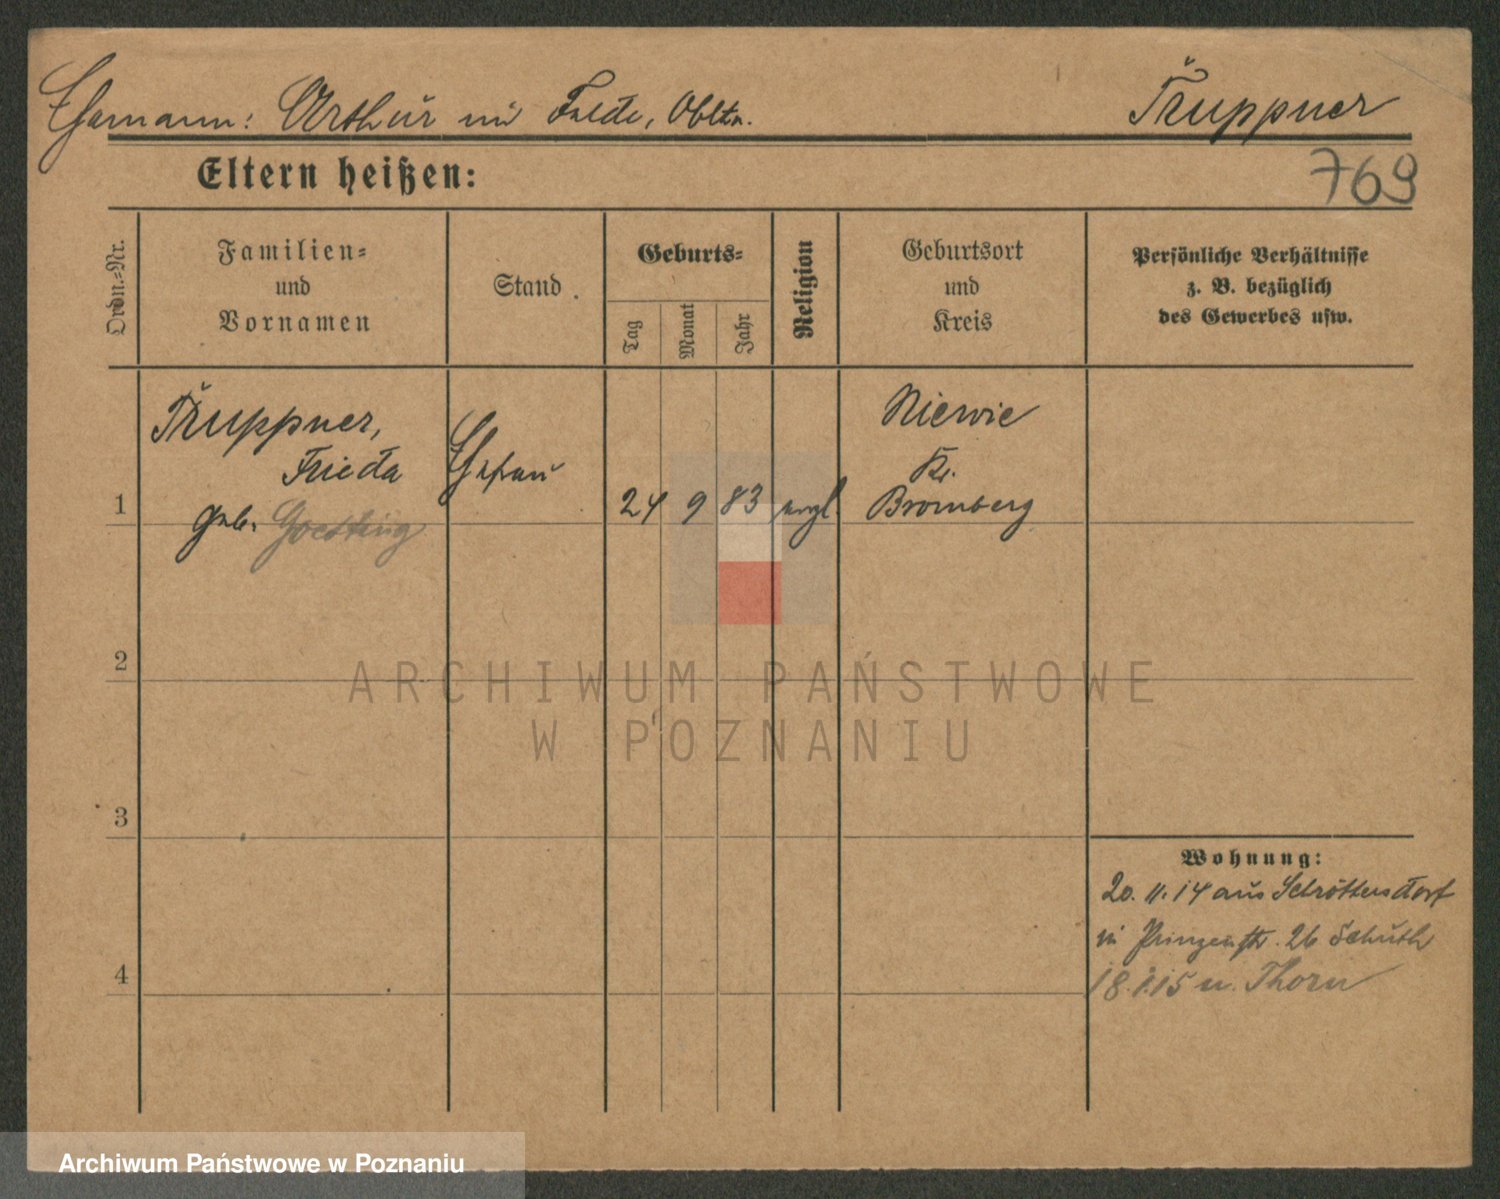 Ehemann: Arthur im Felde, Obltn. Truppner
Eltern heißen:
769
Ordn.-Nr.
Familien-
und
Vornamen
Stand
Geburts-
Tag
Monat
Jahr
Religion
Geburtsort
und
Kreis
Persönliche Verhältnisse
z. B. bezüglich
des Gewerbes usw.
1
Truppner,
Frieda
geb. Goesting
Ehefrau
24 9 83 evgl
Niewie
Kr.
Bromberg
2
3
4
Wohnung:
20. 11. 14 aus Schröttersdorf
in Prinzenstr. 26 Schuth
18.1.15 n. Thorn
ARCHIWUM PAŃSTWOWE
W POZNANIU
Archiwum Państwowe w Poznaniu